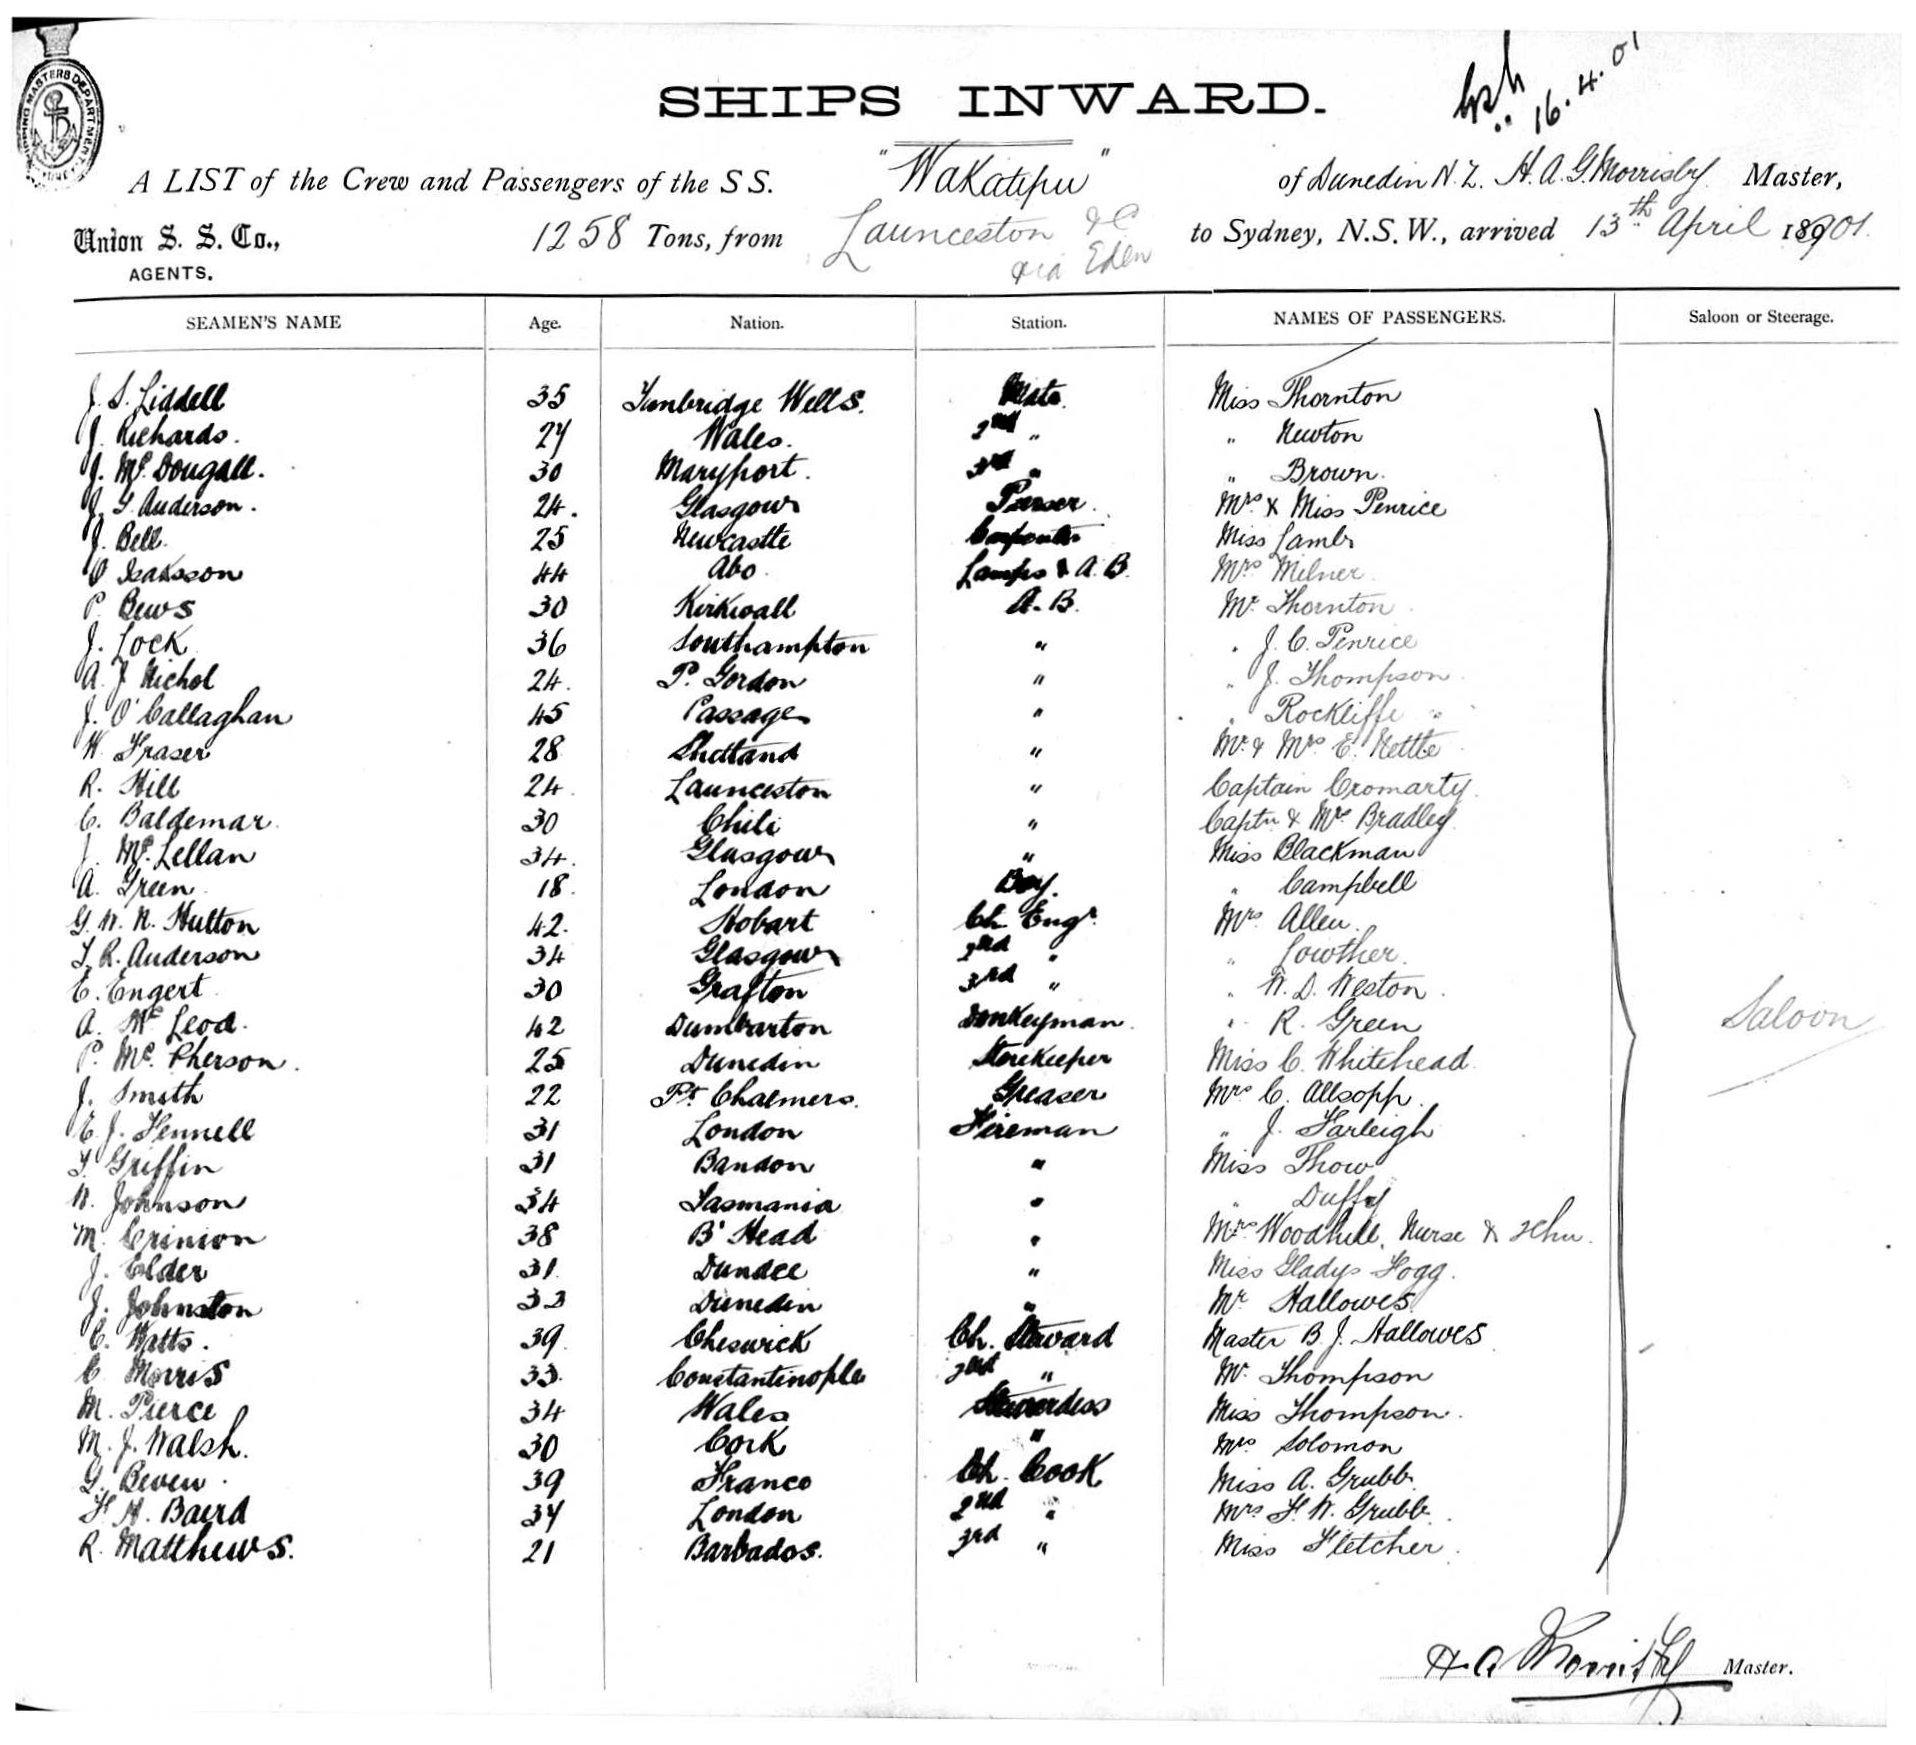 SHIPPING MASTERS DEPARTMENT
16.4.01
SHIPS INWARD.
A LIST of the Crew and Passengers of the SS. "Wakatipu" of Dunedin N.Z. H. A. G. Morrisby Master,
Union S. S. Co., 1258 Tons, from Launceston &c to Sydney, N.S.W., arrived 13th April 18901.
AGENTS. via Eden
SEAMEN'S NAME Age. Nation. Station. NAMES OF PASSENGERS. Saloon or Steerage.
J. S. Liddell 35 Tunbridge Wells. Mate. Miss Thornton
J. Richards. 27 Wales. 2nd " " Newton
J. McDougall. 30 Maryport. 3rd " " Brown.
J. G. Anderson. 24. Glasgow Purser. Mrs & Miss Penrice
J. Bell. 25 Newcastle Carpenter Miss Lamb
O Isaksson 44 Abo. Lamps & A.B. Mrs Milner
P. Bews 30 Kirkwall A.B. Mr Thornton
J. Lock 36 Southampton " " J. C. Penrice
A. J Nichol 24. P. Gordon " " J. Thompson
J. O'Callaghan 45 Passage " " Rockliffe "
W. Fraser 28 Shetland " Mr & Mrs E. Nettle
R. Hill 24. Launceston " Captain Cromarty.
C. Baldemar. 30 Chili " Captn & Mrs Bradley
J. McLellan 34. Glasgow " Miss Blackman
A. Green 18. London Boy. " Campbell
G. W. N. Hutton 42. Hobart Ch. Engr. Mrs Allen.
T. R. Anderson 34 Glasgow 2nd " " Lowther.
E. Engert 30 Grafton 3rd " " W. D. Weston.
A. McLeod. 42 Dumbarton Donkeyman. " R. Green
P. McPherson. 25 Dunedin Storekeeper Miss C. Whitehead. Saloon
J. Smith 22 Pt. Chalmers. Greaser Mrs C. Allsopp.
E. J. Fennell 31 London Fireman " J. Farleigh
T. Griffin 31 Bandon " Miss Thow
W. Johnson 34 Tasmania " " Duffy
M. Crinion 38 B' Head " Mrs Woodhill, Nurse & 2 Chn.
J. Elder 31. Dundee " Miss Gladys Fogg.
J. Johnston 33 Dunedin " Mr Hallowes.
C. Watts. 39. Cheswick Ch. Steward Master B. J. Hallowes
C. Morris 33. Constantinople 2nd " Mr Thompson
M. Pierce 34 Wales Stewardess Miss Thompson.
M. J. Walsh. 30 Cork " Mrs Solomon
G. Beven. 39 France Ch. Cook Miss A. Grubb
F. H. Baird 34 London 2nd " Mrs F. W. Grubb.
R. Matthews. 21 Barbados. 3rd " Miss Fletcher.
H. A. Morrisby Master.